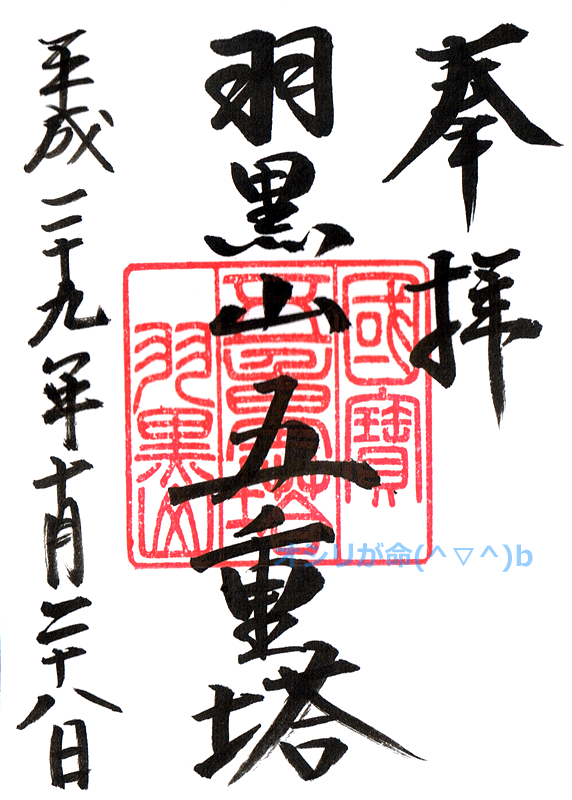 奉拝
國寶
五重塔
羽黒山
羽黒山五重塔
平成二十九年十月二十八日
オシリが命(^▽^)b